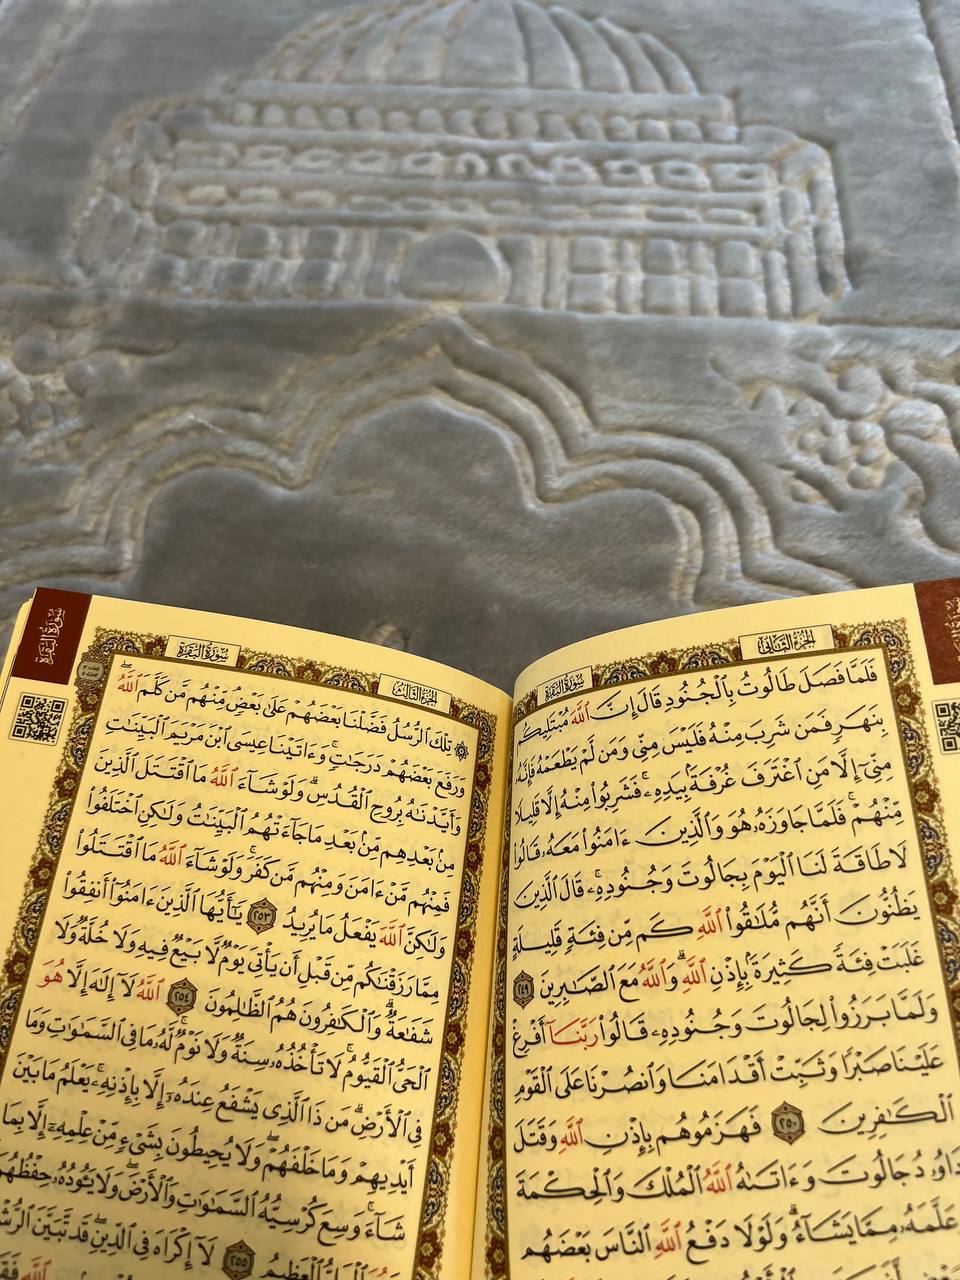 سُورَةُ البَقَرَةِ
الجُزْءُ الثَّانِي
فَلَمَّا فَصَلَ طَالُوتُ بِٱلْجُنُودِ قَالَ إِنَّ ٱللَّهَ مُبْتَلِيكُم
بِنَهَرٍ فَمَن شَرِبَ مِنْهُ فَلَيْسَ مِنِّى وَمَن لَّمْ يَطْعَمْهُ فَإِنَّهُۥ
مِنِّىٓ إِلَّا مَنِ ٱغْتَرَفَ غُرْفَةًۢ بِيَدِهِۦۚ فَشَرِبُوا۟ مِنْهُ إِلَّا قَلِيلًا
مِّنْهُمْۚ فَلَمَّا جَاوَزَهُۥ هُوَ وَٱلَّذِينَ ءَامَنُوا۟ مَعَهُۥ قَالُوا۟
لَا طَاقَةَ لَنَا ٱلْيَوْمَ بِجَالُوتَ وَجُنُودِهِۦۚ قَالَ ٱلَّذِينَ
يَظُنُّونَ أَنَّهُم مُّلَـٰقُوا۟ ٱللَّهِ كَم مِّن فِئَةٍ قَلِيلَةٍ
غَلَبَتْ فِئَةً كَثِيرَةًۢ بِإِذْنِ ٱللَّهِۗ وَٱللَّهُ مَعَ ٱلصَّـٰبِرِينَ ٢٤٩
وَلَمَّا بَرَزُوا۟ لِجَالُوتَ وَجُنُودِهِۦ قَالُوا۟ رَبَّنَآ أَفْرِغْ
عَلَيْنَا صَبْرًا وَثَبِّتْ أَقْدَامَنَا وَٱنصُرْنَا عَلَى ٱلْقَوْمِ
ٱلْكَـٰفِرِينَ ٢٥٠ فَهَزَمُوهُم بِإِذْنِ ٱللَّهِ وَقَتَلَ
دَاوُۥدُ جَالُوتَ وَءَاتَىٰهُ ٱللَّهُ ٱلْمُلْكَ وَٱلْحِكْمَةَ
عَلَّمَهُۥ مِمَّا يَشَآءُۗ وَلَوْلَا دَفْعُ ٱللَّهِ ٱلنَّاسَ بَعْضَهُم
سُورَةُ البَقَرَةِ
الجُزْءُ الثَّالِثُ
سُورَةُ البَقَرَةِ
۞ تِلْكَ ٱلرُّسُلُ فَضَّلْنَا بَعْضَهُمْ عَلَىٰ بَعْضٍۘ مِّنْهُم مَّن كَلَّمَ ٱللَّهُۖ
وَرَفَعَ بَعْضَهُمْ دَرَجَـٰتٍۚ وَءَاتَيْنَا عِيسَى ٱبْنَ مَرْيَمَ ٱلْبَيِّنَـٰتِ
وَأَيَّدْنَـٰهُ بِرُوحِ ٱلْقُدُسِۗ وَلَوْ شَآءَ ٱللَّهُ مَا ٱقْتَتَلَ ٱلَّذِينَ
مِنۢ بَعْدِهِم مِّنۢ بَعْدِ مَا جَآءَتْهُمُ ٱلْبَيِّنَـٰتُ وَلَـٰكِنِ ٱخْتَلَفُوا۟
فَمِنْهُم مَّنْ ءَامَنَ وَمِنْهُم مَّن كَفَرَۚ وَلَوْ شَآءَ ٱللَّهُ مَا ٱقْتَتَلُوا۟
وَلَـٰكِنَّ ٱللَّهَ يَفْعَلُ مَا يُرِيدُ ٢٥٣ يَـٰٓأَيُّهَا ٱلَّذِينَ ءَامَنُوٓا۟ أَنفِقُوا۟
مِمَّا رَزَقْنَـٰكُم مِّن قَبْلِ أَن يَأْتِىَ يَوْمٌ لَّا بَيْعٌ فِيهِ وَلَا خُلَّةٌ وَلَا
شَفَـٰعَةٌۗ وَٱلْكَـٰفِرُونَ هُمُ ٱلظَّـٰلِمُونَ ٢٥٤ ٱللَّهُ لَآ إِلَـٰهَ إِلَّا هُوَ
ٱلْحَىُّ ٱلْقَيُّومُۚ لَا تَأْخُذُهُۥ سِنَةٌ وَلَا نَوْمٌۚ لَّهُۥ مَا فِى ٱلسَّمَـٰوَٰتِ وَمَا
فِى ٱلْأَرْضِۗ مَن ذَا ٱلَّذِى يَشْفَعُ عِندَهُۥٓ إِلَّا بِإِذْنِهِۦۚ يَعْلَمُ مَا بَيْنَ
أَيْدِيهِمْ وَمَا خَلْفَهُمْۖ وَلَا يُحِيطُونَ بِشَىْءٍ مِّنْ عِلْمِهِۦٓ إِلَّا بِمَا
شَآءَۚ وَسِعَ كُرْسِيُّهُ ٱلسَّمَـٰوَٰتِ وَٱلْأَرْضَۖ وَلَا يَـُٔودُهُۥ حِفْظُهُمَا
ٱلْعَظِيمُ ٢٥٥ لَآ إِكْرَاهَ فِى ٱلدِّينِۖ قَد تَّبَيَّنَ ٱلرُّشْدُ